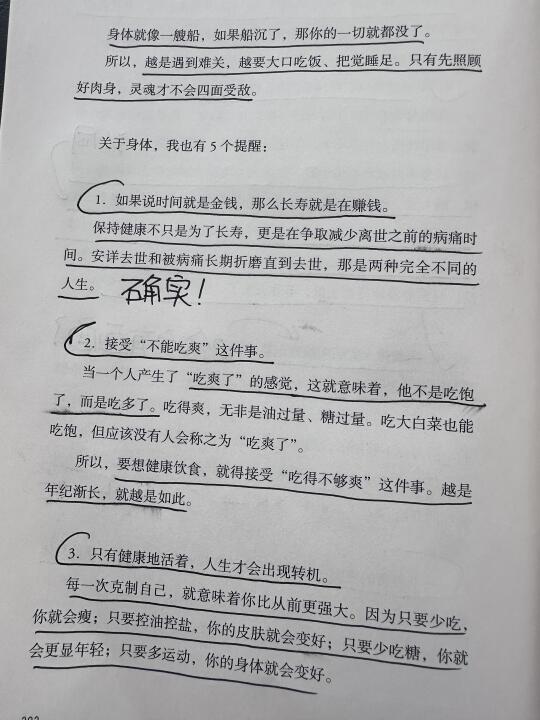 身体就像一艘船，如果船沉了，那你的一切就都没了。
所以，越是遇到难关，越要大口吃饭、把觉睡足。只有先照顾
好肉身，灵魂才不会四面受敌。
关于身体，我也有 5 个提醒：
1．如果说时间就是金钱，那么长寿就是在赚钱。
保持健康不只是为了长寿，更是在争取减少离世之前的病痛时
间。安详去世和被病痛长期折磨直到去世，那是两种完全不同的
人生。 确实！
2．接受“不能吃爽”这件事。
当一个人产生了“吃爽了”的感觉，这就意味着，他不是吃饱
了，而是吃多了。吃得爽，无非是油过量、糖过量。吃大白菜也能
吃饱，但应该没有人会称之为“吃爽了”。
所以，要想健康饮食，就得接受“吃得不够爽”这件事。越是
年纪渐长，就越是如此。
3．只有健康地活着，人生才会出现转机。
每一次克制自己，就意味着你比从前更强大。因为只要少吃，
你就会瘦；只要控油控盐，你的皮肤就会变好；只要少吃糖，你就
会更显年轻；只要多运动，你的身体就会变好。